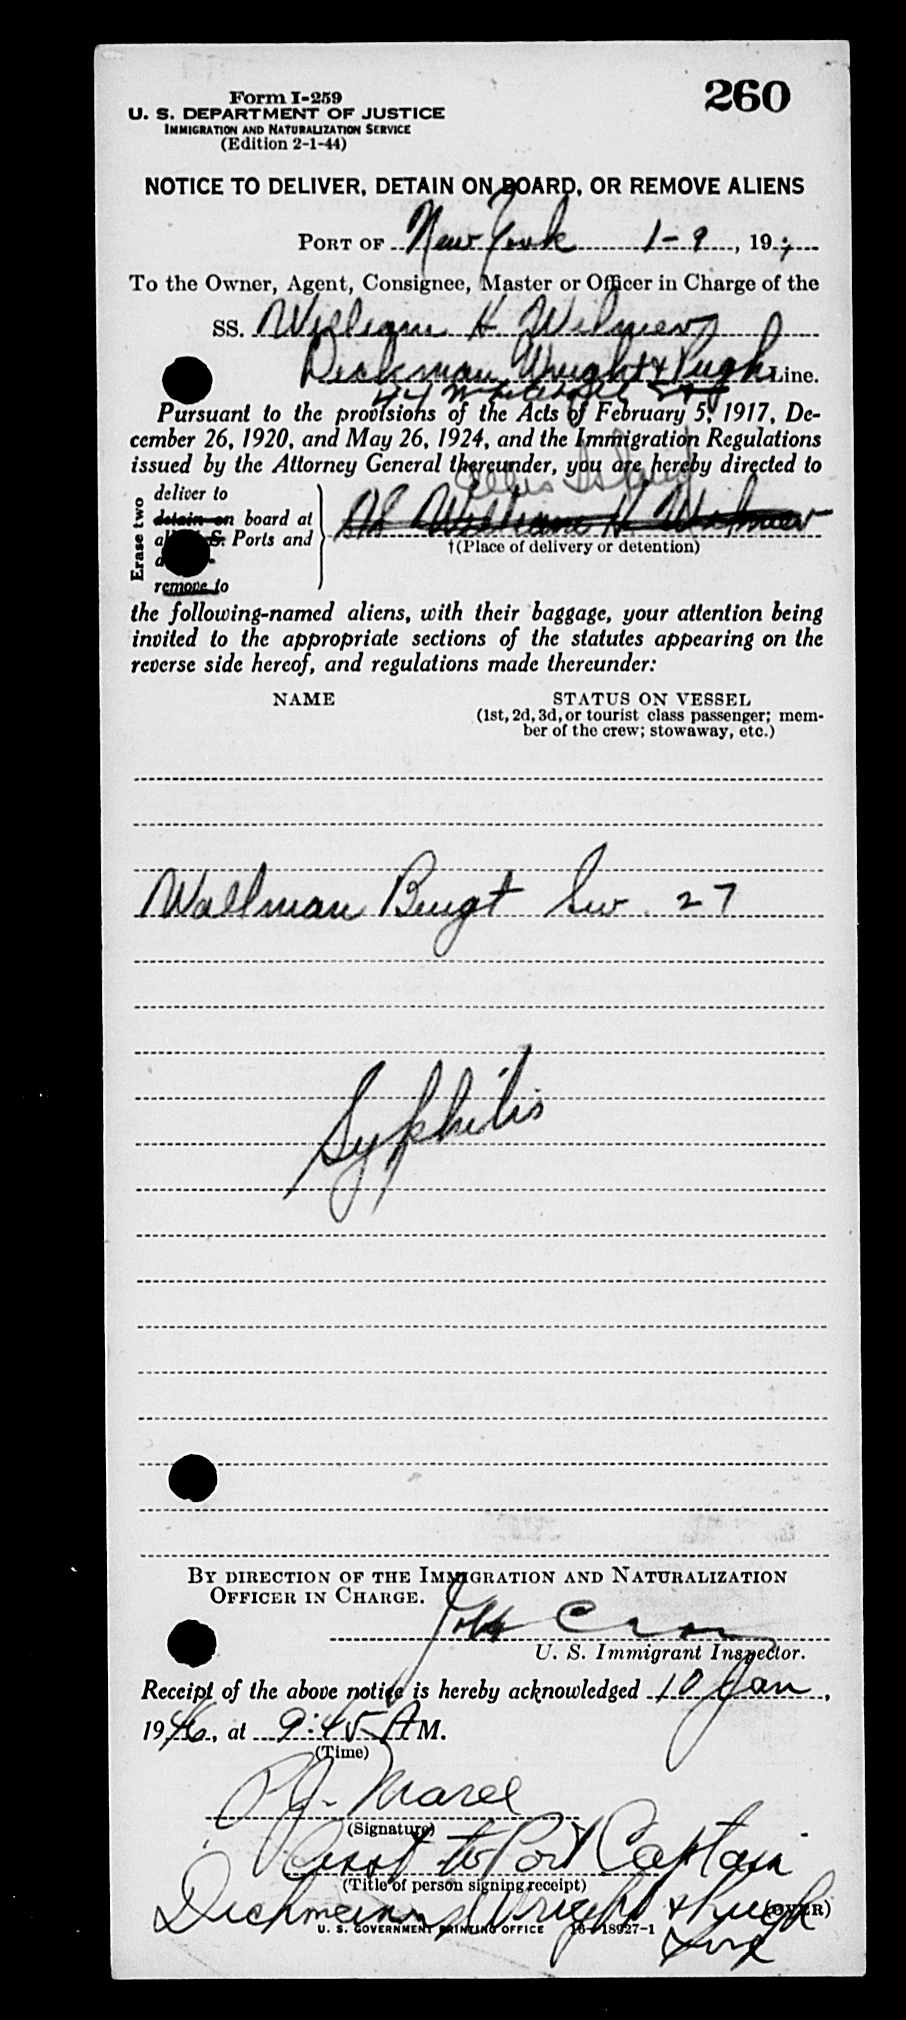 Form I-259
260
U. S. DEPARTMENT OF JUSTICE
IMMIGRATION AND NATURALIZATION SERVICE
(Edition 2-1-44)
NOTICE TO DELIVER, DETAIN ON BOARD, OR REMOVE ALIENS
PORT OF New York 1-9, 19
To the Owner, Agent, Consignee, Master or Officer in Charge of the
SS. William H Wilmer
Dickman Wright & Pugh Line.
44 Whitehall
Pursuant to the provisions of the Acts of February 5, 1917, De-
cember 26, 1920, and May 26, 1924, and the Immigration Regulations
issued by the Attorney General thereunder, you are hereby directed to
Ellis Island
Erase two
deliver to
detain on board at
S. Ports and
remove to
SS William H. Wilmer
†(Place of delivery or detention)
the following-named aliens, with their baggage, your attention being
invited to the appropriate sections of the statutes appearing on the
reverse side hereof, and regulations made thereunder:
NAME STATUS ON VESSEL
(1st, 2d, 3d, or tourist class passenger; mem-
ber of the crew; stowaway, etc.)
Wallman Bengt Sw. 27
Syphilis
BY DIRECTION OF THE IMMIGRATION AND NATURALIZATION
OFFICER IN CHARGE.
U. S. Immigrant Inspector.
Receipt of the above notice is hereby acknowledged 10 Jan,
1946, at 9:45 AM.
(Time)
(Signature)
Asst to Port Captain
(Title of person signing receipt)
Dichmann, Wright & Pugh
(OVER)
U. S. GOVERNMENT PRINTING OFFICE 16-18927-1